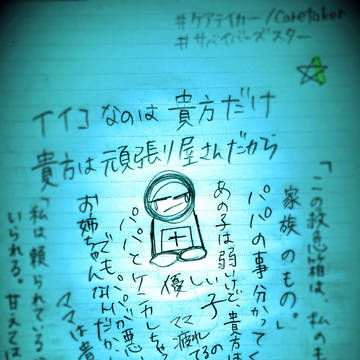 #ケアテイカー/Caretaker
#サバイバーズスター
イイコなのは貴方だけ
貴方は頑張り屋さんだから
「この救急箱は、私の
家族のもの。」
パパの事分かって
あの子は弱いけど、貴方は
優しい子
ママ疲れ
てるの
パパとケンカしちゃ
でも、パパが悪
お姉ちゃんなんだか
ママは貴
「私は頼られている
いられる。甘えては